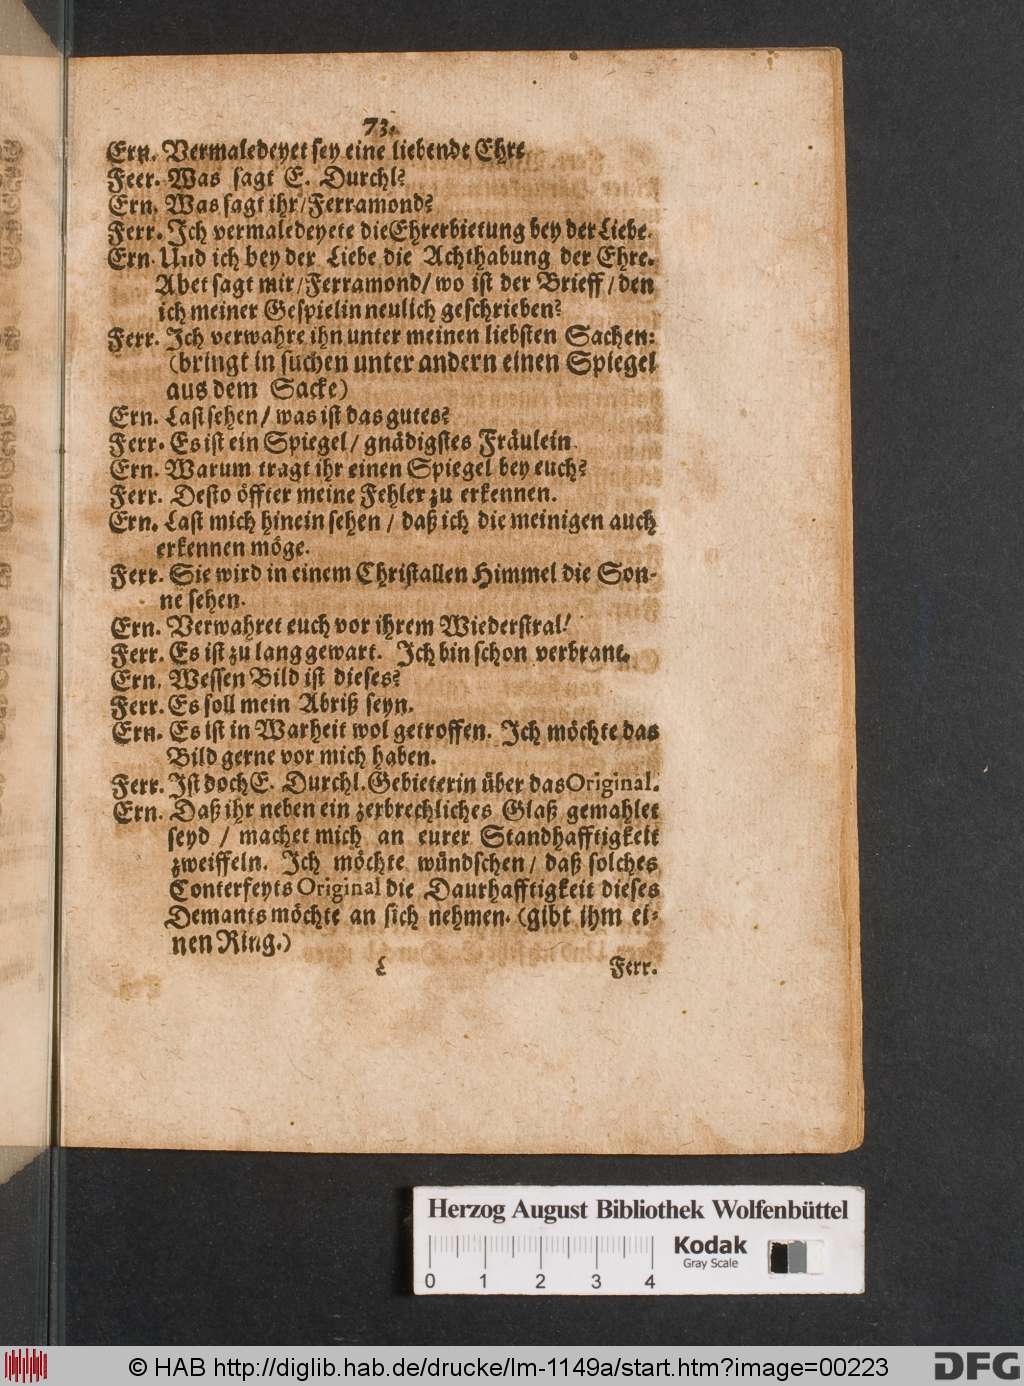 73.
Ern. Vermaledeyet sey eine liebende Ehre
Feer. Was sagt E. Durchl?
Ern. Was sagt ihr/Ferramond?
Ferr. Ich vermaledeyete die Ehrerbietung bey der Liebe.
Ern. Und ich bey der Liebe die Achthabung der Ehre.
Abet sagt mir/Ferramond/ wo ist der Brieff/den
ich meiner Gespielin neulich geschrieben?
Ferr. Ich verwahre ihn unter meinen liebsten Sachen:
(bringt in suchen unter andern einen Spiegel
aus dem Sacke)
Ern. Last sehen/ was ist das gutes?
Ferr. Es ist ein Spiegel/ gnädigstes Fräulein
Ern. Warum tragt ihr einen Spiegel bey euch?
Ferr. Desto öffter meine Fehler zu erkennen.
Ern. Last mich hinein sehen / daß ich die meinigen auch
erkennen möge.
Ferr. Sie wird in einem Christallen Himmel die Son-
ne sehen.
Ern. Verwahret euch vor ihrem Wiederstral!
Ferr. Es ist zu lang gewart. Ich bin schon verbrant.
Ern. Wessen Bild ist dieses?
Ferr. Es soll mein Abriß seyn.
Ern. Es ist in Warheit wol getroffen. Ich möchte das
Bild gerne vor mich haben.
Ferr. Ist doch E. Durchl. Gebieterin über das Original.
Ern. Daß ihr neben ein zerbrechliches Glaß gemahlet
seyd / machet mich an eurer Standhafftigkeit
zweiffeln. Ich möchte wündschen/ daß solches
Conterfeyts Original die Daurhafftigkeit dieses
Demants möchte an sich nehmen. (gibt ihm ei-
nen Ring.)
L Ferr.
Herzog August Bibliothek Wolfenbüttel
Kodak
Gray Scale
0 1 2 3 4
© HAB http://diglib.hab.de/drucke/lm-1149a/start.htm?image=00223
DFG